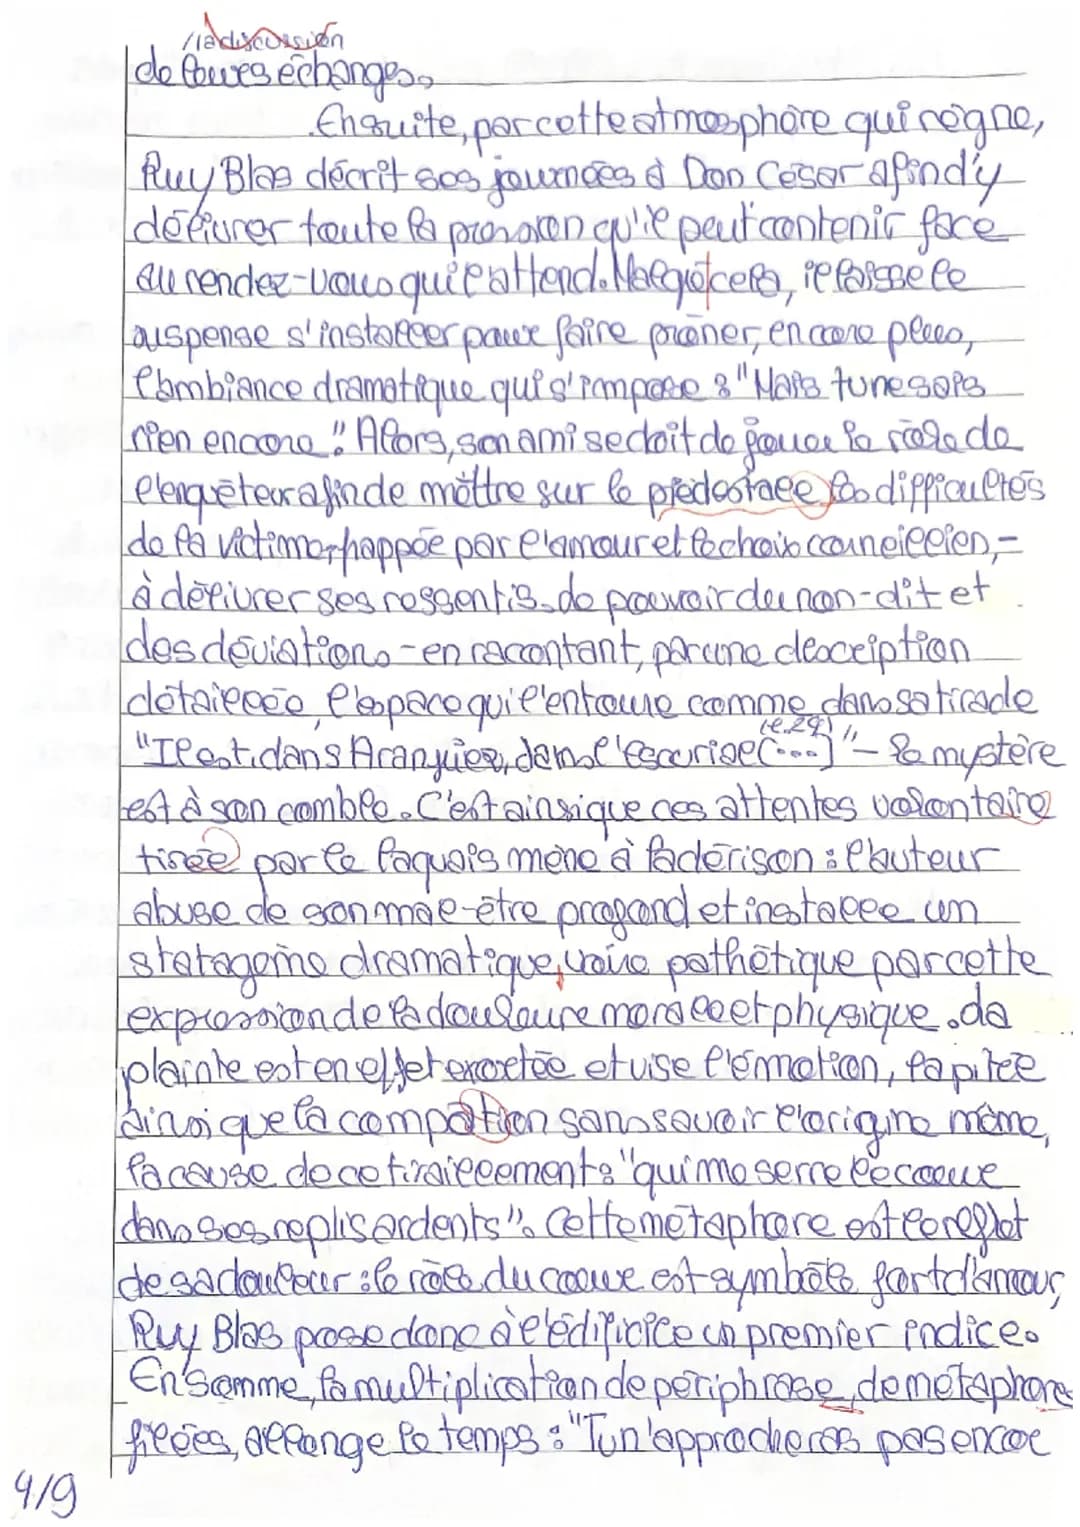 /la discussion
de leurs échanges.
Ensuite, par cette atmosphère qui règne,
Ruy Blas décrit ses journées à Don César afin d'y
délivrer toute la pression qu'il peut contenir face
au rendez-vous qui l'attend. Malgré cela, il laisse le
suspense s'installer pour faire prôner, encore plus,
l'ambiance dramatique qui s'impose : "Mais tu ne sais
rien encore". Alors, son ami se doit de jouer le rôle de
l'enquêteur afin de mettre sur le piedestale les difficultés
de la victime, happée par l'amour et le choix corneillien, -
à délivrer ses ressentis, de pouvoir du non-dit et
des déviations - en racontant, par une description
détaillée, l'espace qui l'entoure comme dans sa tirade
"Il est dans Aranjuez, dans l'Escurial (...)" (l.29) - le mystère
est à son comble. C'est ainsi que ces attentes volontaire
tirée par le laquais mène à la dérison : l'auteur
abuse de son mal-être profond et installe un
statagème dramatique, voire pathétique par cette
expression de la douleure morale et physique. La
plainte est en effet exortée et vise l'émotion, la pitée
ainsi que la compation sans savoir l'origine même,
la cause de ce tiraillement : "qui me serre le coeur
dans ses replis ardents". Cette métaphore est le reflet
de sa douleur : le rôle du coeur est symbole fort d'amour,
Ruy Blas pose donc à l'édificice un premier indice.
En somme, la multiplication de périphrase, de métaphores
filées, allonge le temps : "Tu n'approcheras pas encor
4/9